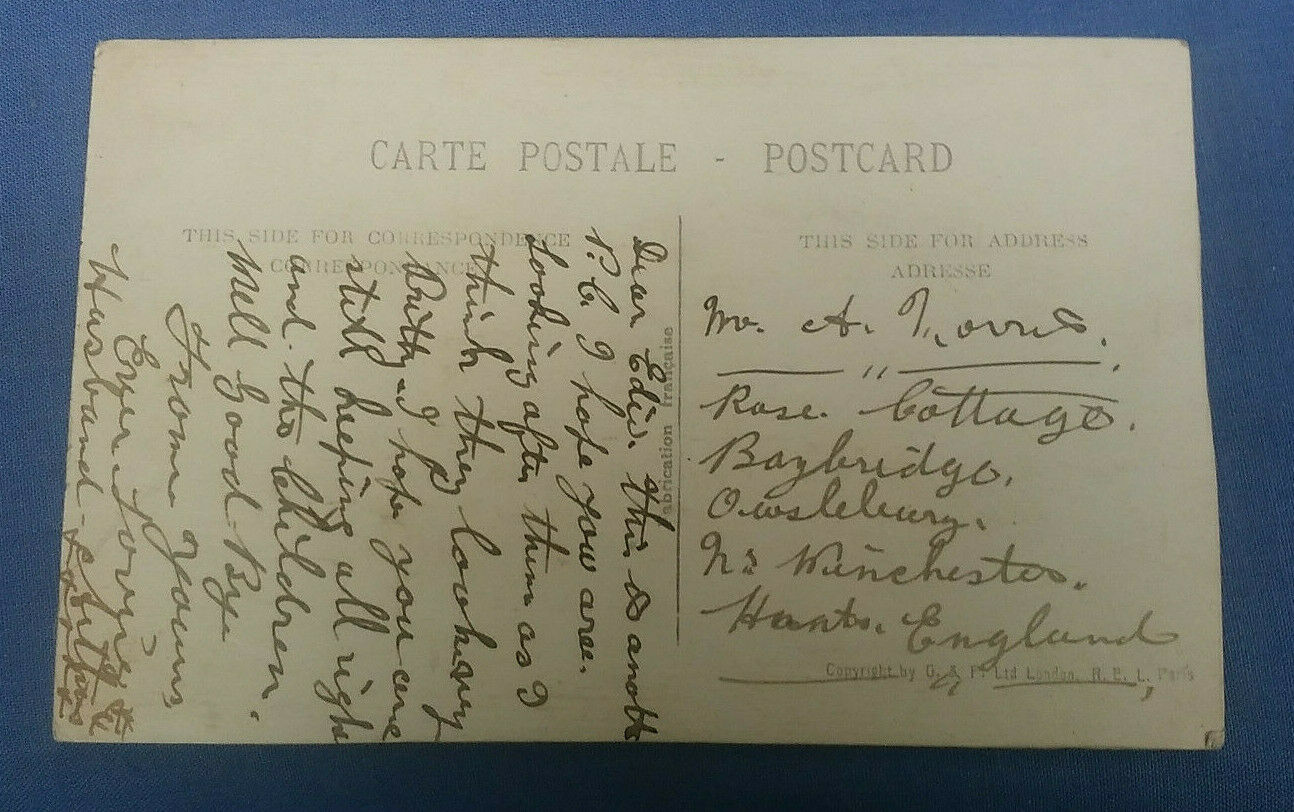 CARTE POSTALE - POSTCARD
THIS SIDE FOR CORRESPONDENCE
CORRESPONDANCE
THIS SIDE FOR ADDRESS
ADRESSE
Dear Edie. this is anoth
P.C I hope you are.
looking after them as I
think they look very
Pritty I hope you are
still keeping all right
and. the Children.
Well Good-Bye
From yours
Ever Loving
Husband-
abrication française
A. Norris.
Rose. Cottage.
Baybridge.
Owslebury.
Nr Winchester.
Hants. England
Copyright by G. & P. Ltd London. R. E. L. Paris